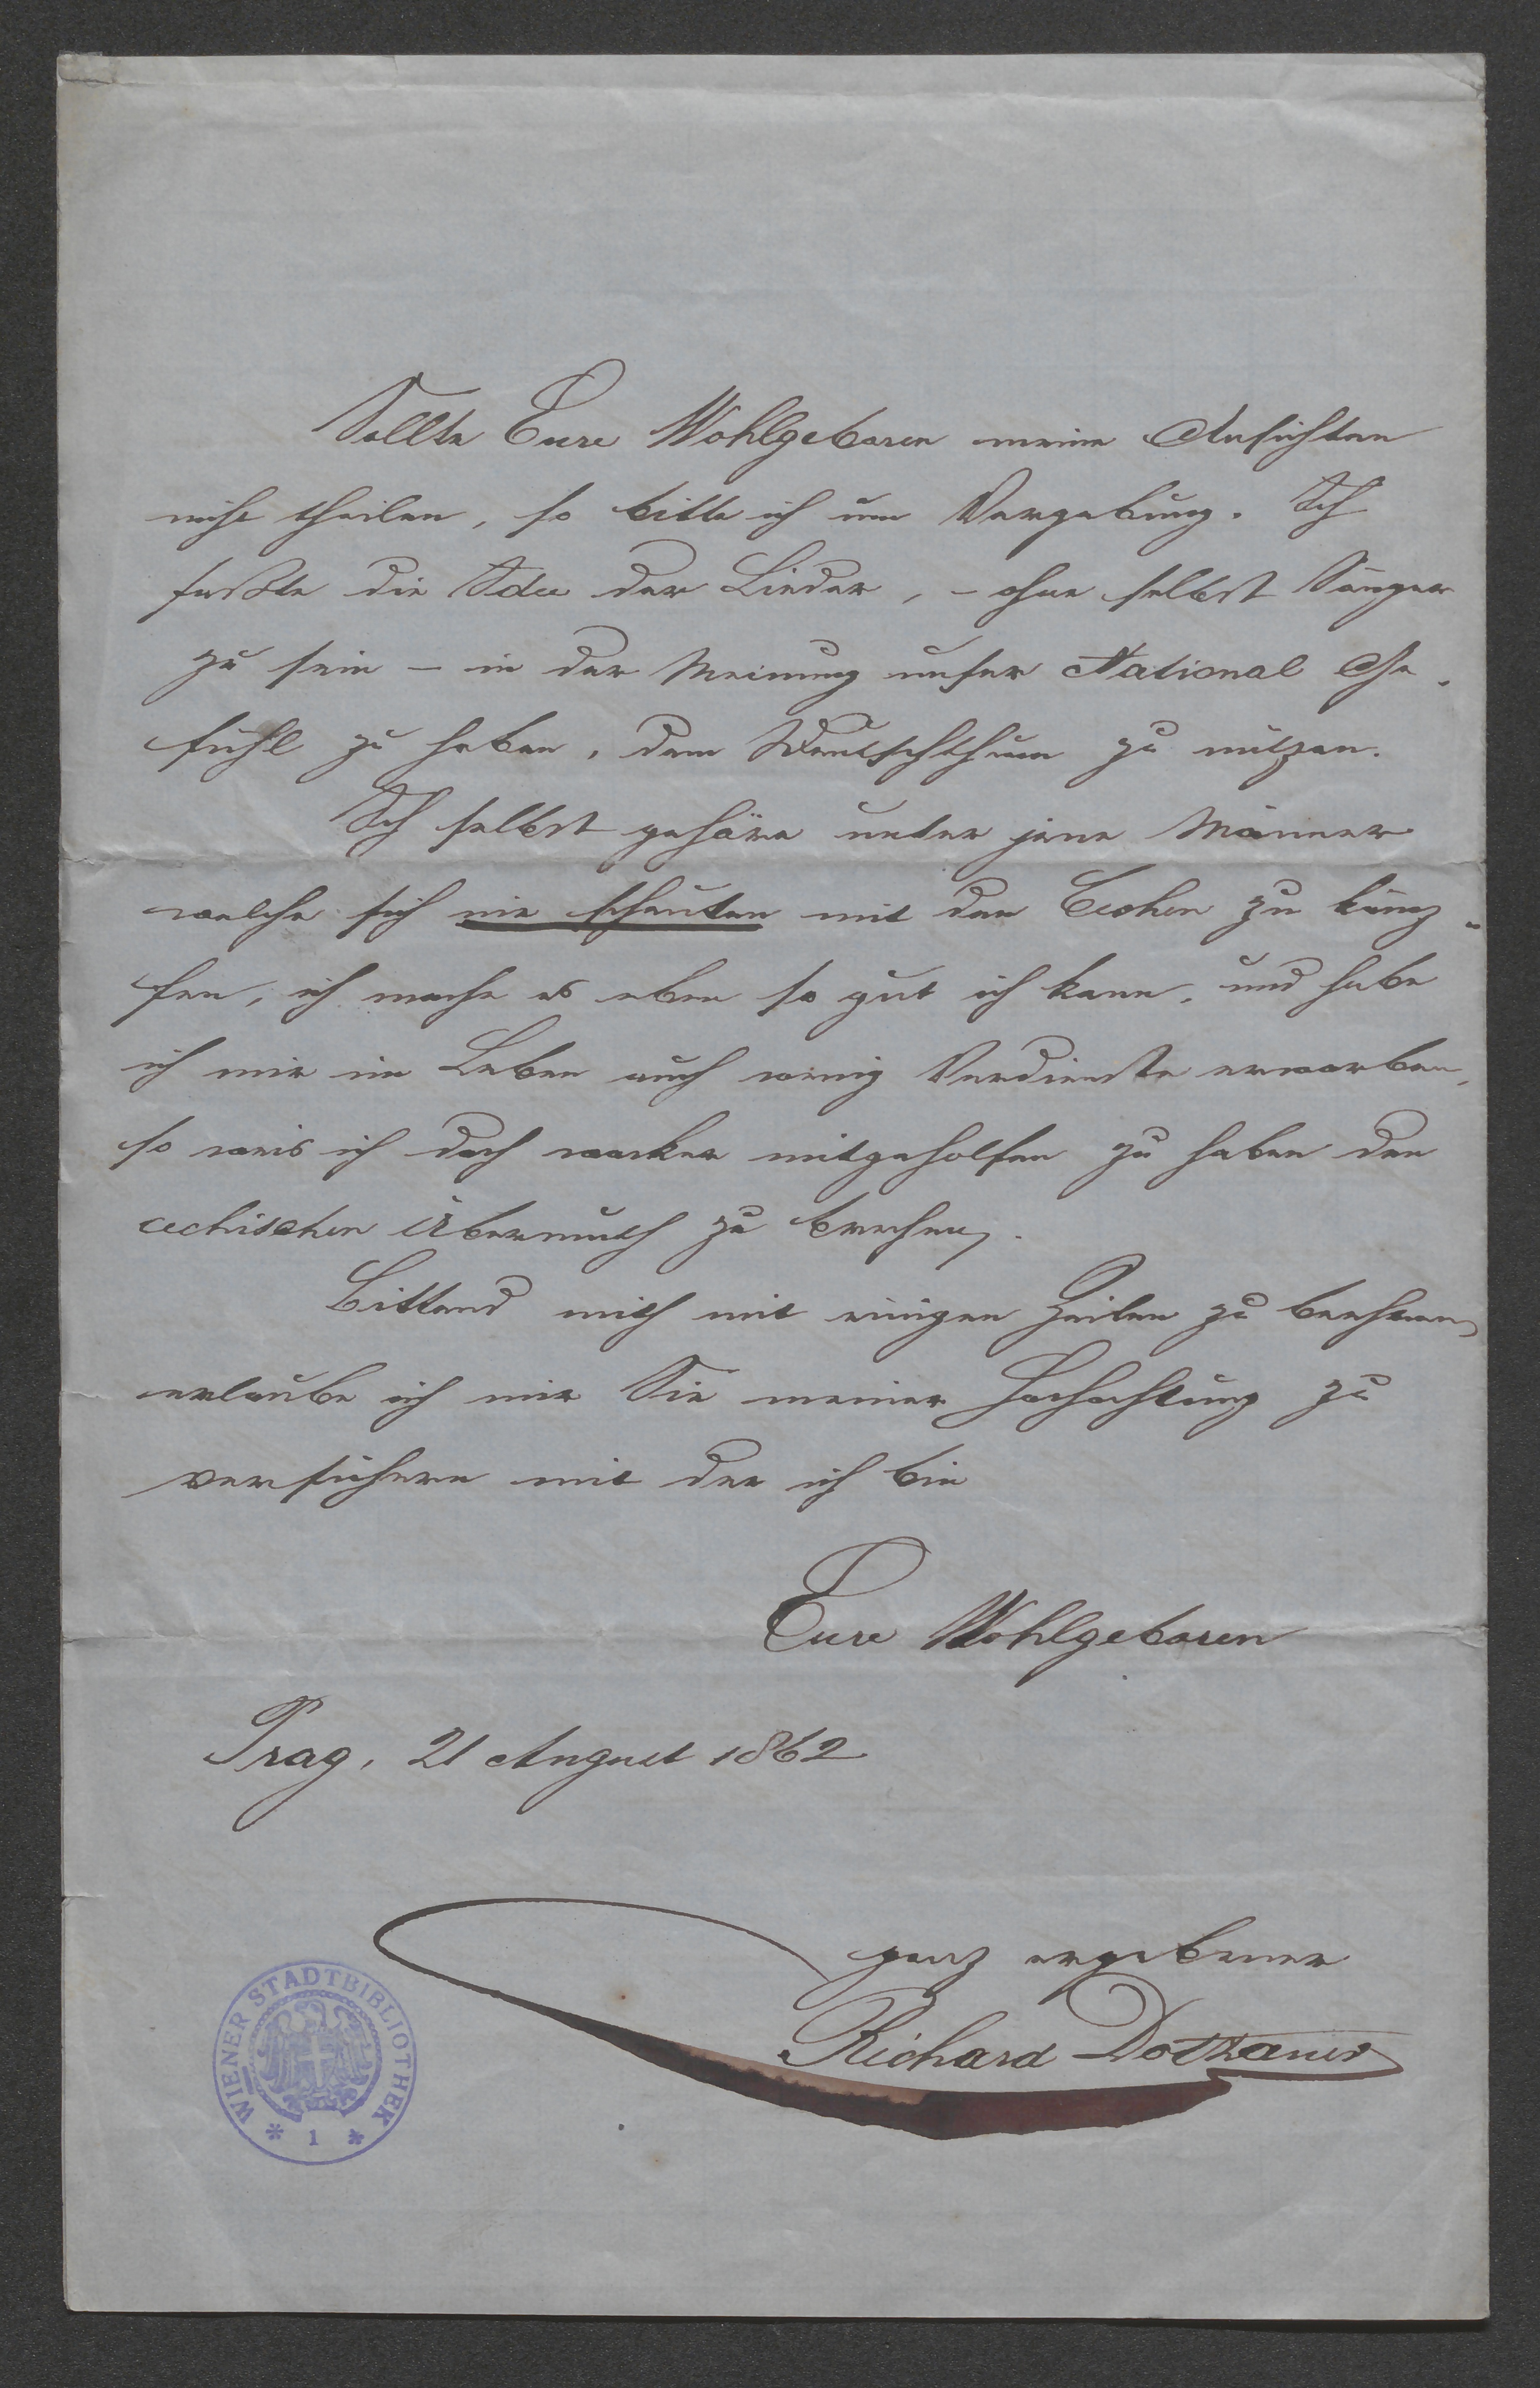 Sollte Eure Wohlgeboren meine Ansichten
nicht theilen, so bitte ich um Vergebung. Ich
faßte die Idee der Lieder, – ohne selbst Sänger
zu sein – in der Meinung unser National Ge-
fühl zu heben, dem Deutschthum zu nützen.
Ich selbst gehöre unter jene Männer
welche sich nie scheuten mit den Čechen zu kämp-
fen, ich mache es eben so gut ich kann, und habe
ich mir im Leben auch wenig Verdienste erworben,
so weis ich doch wacker mitgeholfen zu haben den
cechischen Übermuth zu brechen.
Bittend mich mit einigen Zeilen zu beehren,
erlaube ich mir Sie meiner Hochachtung zu
versichern mit der ich bin
Eure Wohlgeboren
Prag, 21 August 1862
ganz ergebener
Richard Dotzauer
WIENER STADTBIBLIOTHEK
* 1 *